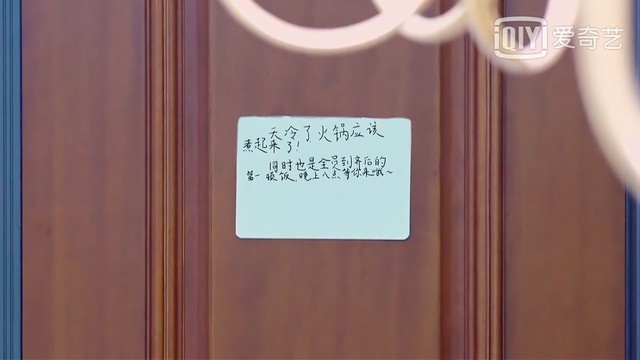 iQIYI 爱奇艺
天冷了火锅应该
煮起来了!
同时也是全员到齐后的
第一顿饭,晚上八点等你来哦~